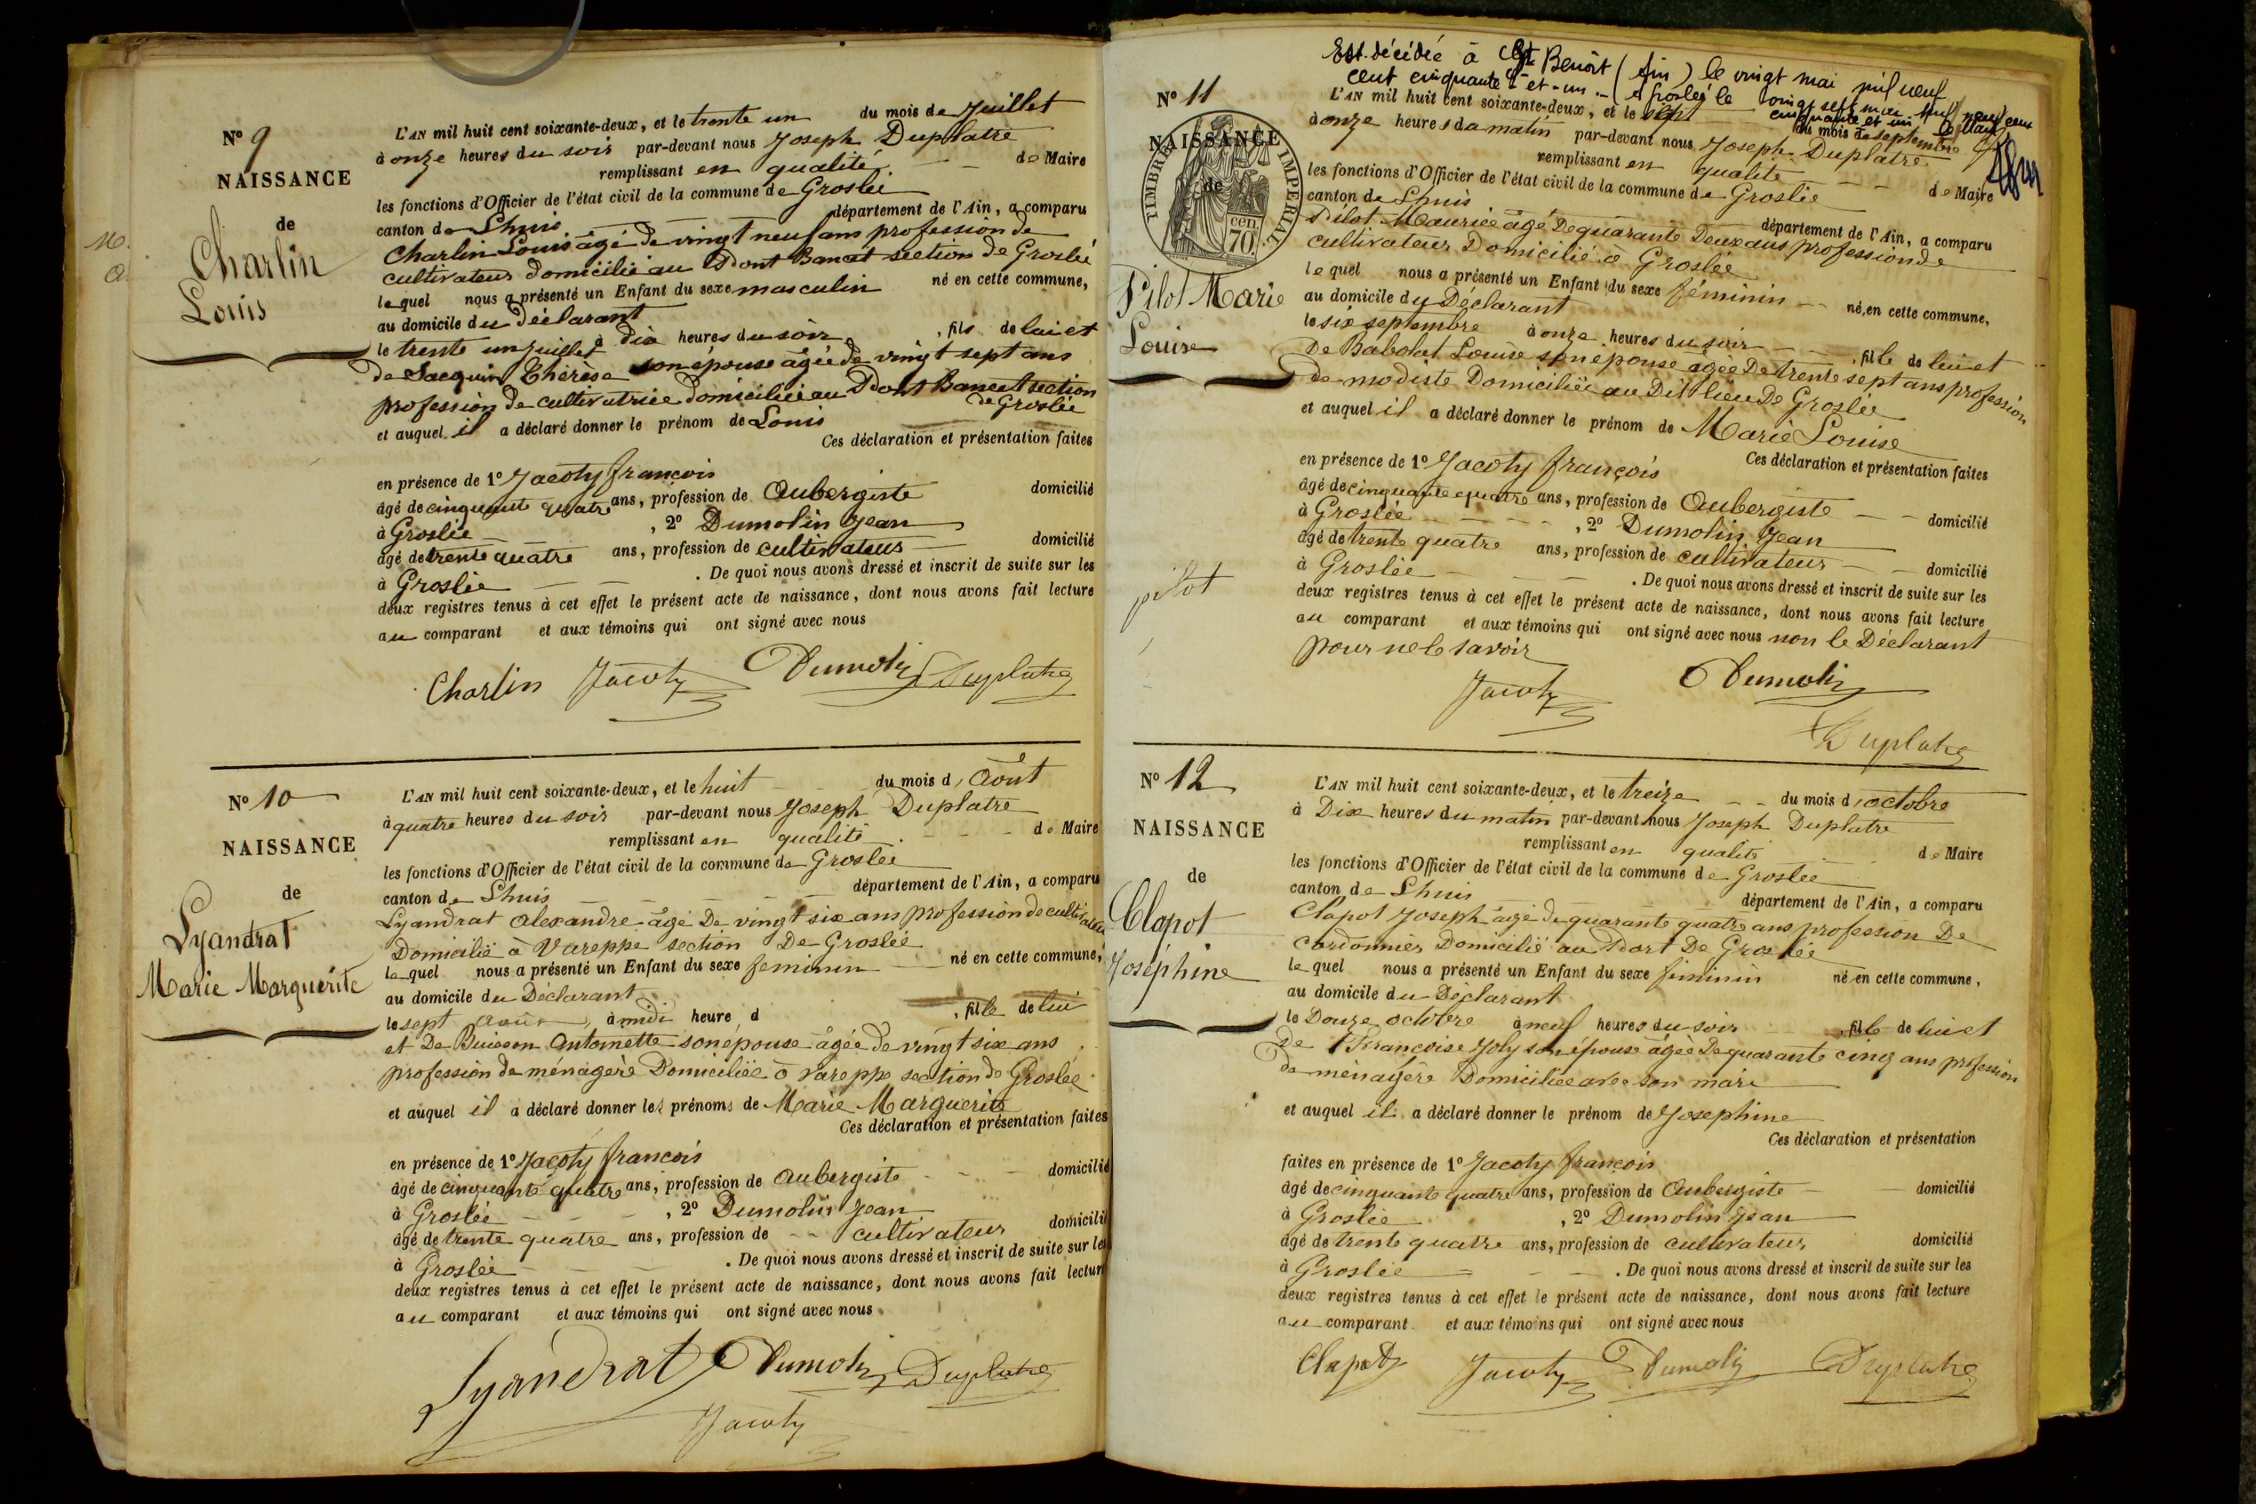 Nº 9
NAISSANCE
de
Charlin
Louis
L'AN mil huit cent soixante-deux, et le trente un du mois de Juillet
à onze heures du soir par-devant nous Joseph Duplatre
remplissant en qualité de Maire
les fonctions d'Officier de l'état civil de la commune de Groslée
canton de Lhuis département de l'Ain, a comparu
Charlin Louis âgé de vingt neuf ans profession de
cultivateur domicilié au Port Bancet section de Groslée
lequel nous a présenté un Enfant du sexe masculin né en cette commune,
au domicile du déclarant
le trente un juillet à dix heures du soir, fils de lui et
de Jacquin Thérèse son épouse âgée de vingt sept ans
profession de cultivatrice domiciliée au Port Bancet section
de Groslée
et auquel il a déclaré donner le prénom de Louis
Ces déclaration et présentation faites
en présence de 1º Jacoty françois
âgé de cinquante quatre ans, profession de Aubergiste domicilié
à Groslée, 2º Dumolin Jean
âgé de trente quatre ans, profession de cultivateur domicilié
à Groslée . De quoi nous avons dressé et inscrit de suite sur les
deux registres tenus à cet effet le présent acte de naissance, dont nous avons fait lecture
au comparant et aux témoins qui ont signé avec nous
Charlin Jacoty Dumolin Duplatre
Nº 10
NAISSANCE
de
Lyandrat
Marie Marguerite
L'AN mil huit cent soixante-deux, et le huit du mois d'Août
à quatre heures du soir par-devant nous Joseph Duplatre
remplissant en qualité de Maire
les fonctions d'Officier de l'état civil de la commune de Groslée
canton de Lhuis département de l'Ain, a comparu
Lyandrat Alexandre âgé De vingt six ans profession de cultivateur
Domicilié à Vareppe section De Groslée
lequel nous a présenté un Enfant du sexe feminin né en cette commune,
au domicile du Déclarant
le sept Août, à midi heure d , fille de lui
et De Buisson Antoinette son épouse âgée de vingt six ans
profession de ménagère Domiciliée à Vareppe section de Groslée
et auquel il a déclaré donner les prénoms de Marie Marguerite
Ces déclaration et présentation faites
en présence de 1º Jacoty francois
âgé de cinquante quatre ans, profession de Aubergiste domicilié
à Groslée, 2º Dumolin Jean
âgé de trente quatre ans, profession de cultivateur domicilié
à Groslée . De quoi nous avons dressé et inscrit de suite sur les
deux registres tenus à cet effet le présent acte de naissance, dont nous avons fait lecture
au comparant et aux témoins qui ont signé avec nous
Lyandrat Dumolin Duplatre
Jacoty
Est décédée à Benoît (Ain) le vingt mai mil neuf
cent cinquante-et-un. Groslée le vingt sept mai mil neuf cent
cinquante et un
Nº 11
NAISSANCE
de
TIMBRE IMPERIAL
70 cen
Pilot Marie
Louise
L'AN mil huit cent soixante-deux, et le sept du mois de septembre
à onze heures du matin par-devant nous Joseph Duplatre
remplissant en qualité de Maire
les fonctions d'Officier de l'état civil de la commune de Groslée
canton de Lhuis département de l'Ain, a comparu
Pilot Maurice âgé De quarante Deux ans profession de
cultivateur Domicilié à Groslée
lequel nous a présenté un Enfant du sexe féminin né en cette commune,
au domicile du Déclarant
le six septembre à onze heures du soir, fille de lui et
De Babolat Louise son épouse âgée De trente sept ans profession
de modiste Domiciliée au Dit lieu De Groslée
et auquel il a déclaré donner le prénom de Marie Louise
Ces déclaration et présentation faites
en présence de 1º Jacoty françois
âgé de cinquante quatre ans, profession de Aubergiste domicilié
à Groslée, 2º Dumolin Jean
âgé de trente quatre ans, profession de cultivateur domicilié
à Groslée . De quoi nous avons dressé et inscrit de suite sur les
deux registres tenus à cet effet le présent acte de naissance, dont nous avons fait lecture
au comparant et aux témoins qui ont signé avec nous non le Déclarant
pour ne le savoir
pilot
Jacoty Dumolin
Duplatre
Nº 12
NAISSANCE
de
Clapot
Joséphine
L'AN mil huit cent soixante-deux, et le treize du mois d'octobre
à Dix heures du matin par-devant nous Joseph Duplatre
remplissant en qualité de Maire
les fonctions d'Officier de l'état civil de la commune de Groslée
canton de Lhuis département de l'Ain, a comparu
Clapot Joseph âgé de quarante quatre ans profession De
cordonnier Domicilié au Port De Groslée
lequel nous a présenté un Enfant du sexe féminin né en cette commune,
au domicile du Déclarant
le Douze octobre à neuf heures du soir, fille de lui et
De Françoise Joly son épouse âgée De quarante cinq ans profession
de ménagère Domiciliée avec son mari
et auquel il a déclaré donner le prénom de Josephine
Ces déclaration et présentation
faites en présence de 1º Jacoty françois
âgé de cinquante quatre ans, profession de Aubergiste domicilié
à Groslée, 2º Dumolin Jean
âgé de trente quatre ans, profession de cultivateur domicilié
à Groslée . De quoi nous avons dressé et inscrit de suite sur les
deux registres tenus à cet effet le présent acte de naissance, dont nous avons fait lecture
au comparant et aux témoins qui ont signé avec nous
Clapot Jacoty Dumolin Duplatre